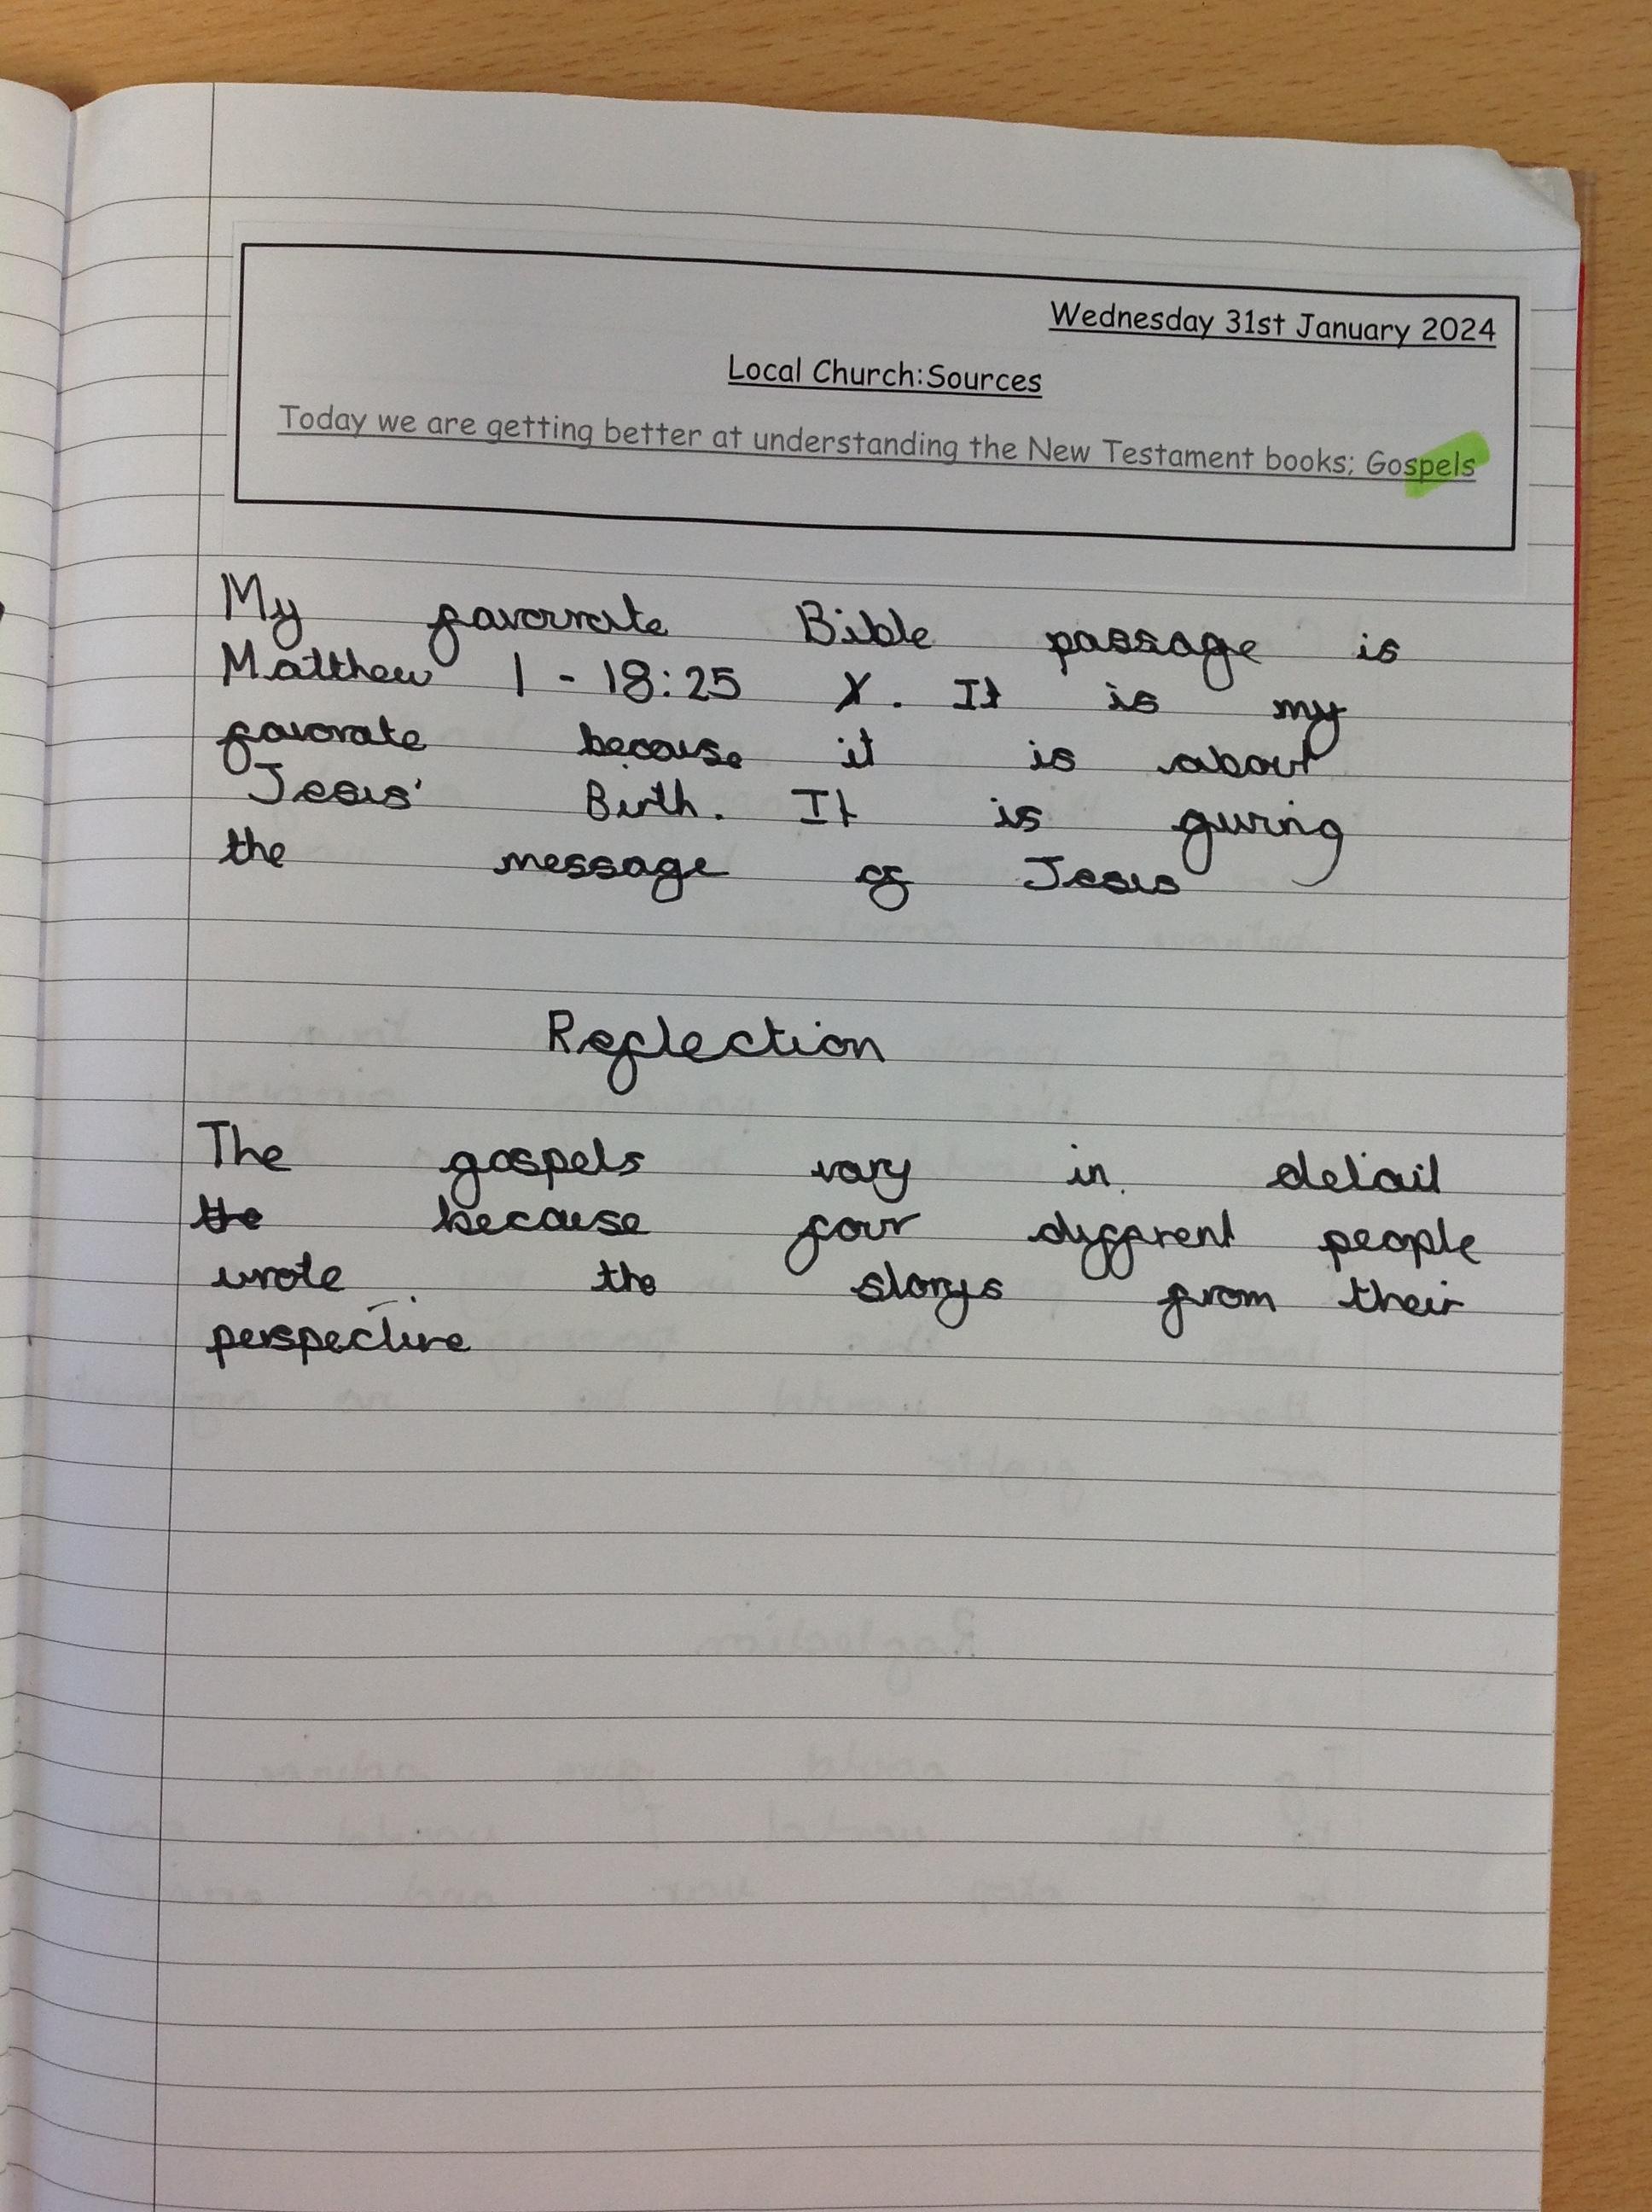 Wednesday 31st January 2024
Local Church:Sources
Today we are getting better at understanding the New Testament books; Gospels
My favourate Bible passage is
Matthew 1 - 18:25 X. It is my
favorate because it is about
Jesus' Birth. It is giving
the message of Jesus
Reflection
The gospels vary in detail
the because four diffrent people
wrote the storys from their
perspective